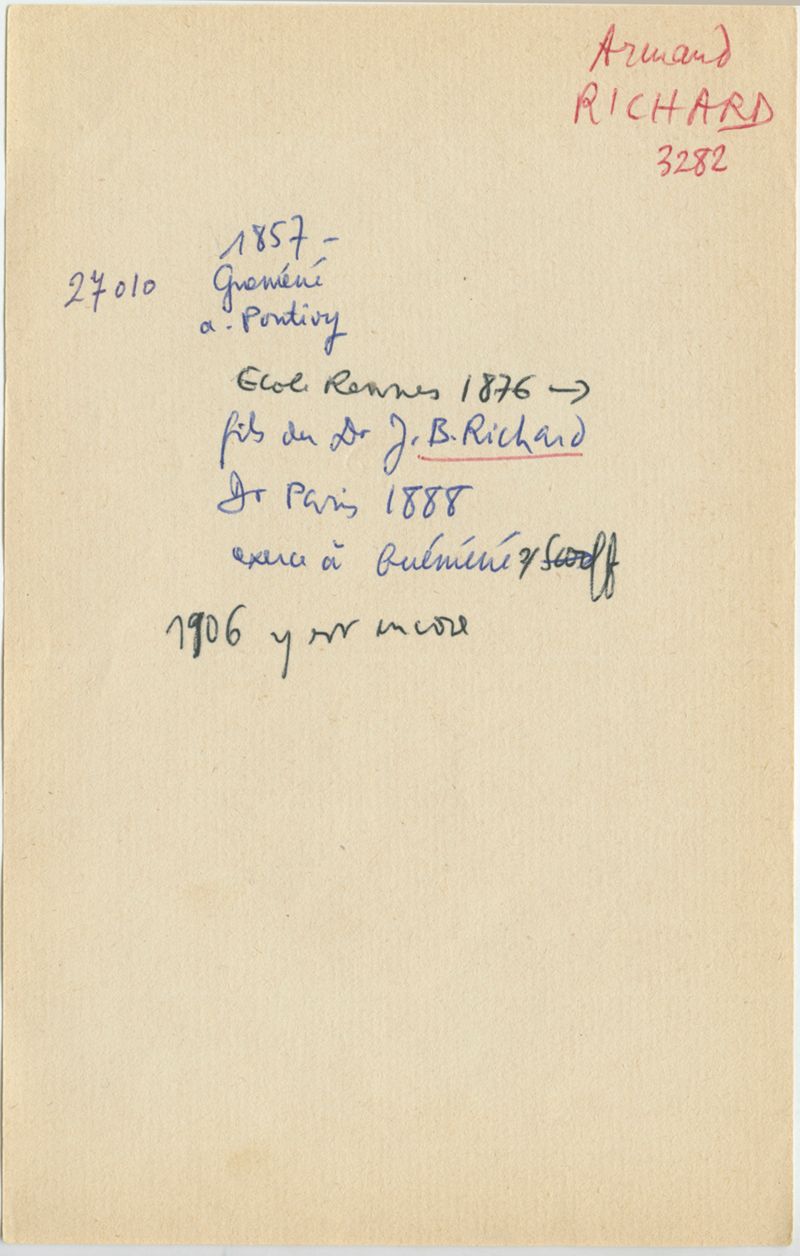 Armand
RICHARD
3282
1857 -
27010 Groméné
a. Pontivy
Ecole Rennes 1876 →
fils du Dr J.B. Richard
Dr Paris 1888
exerce à Guéméné s/ Scorff
1906 y est encore